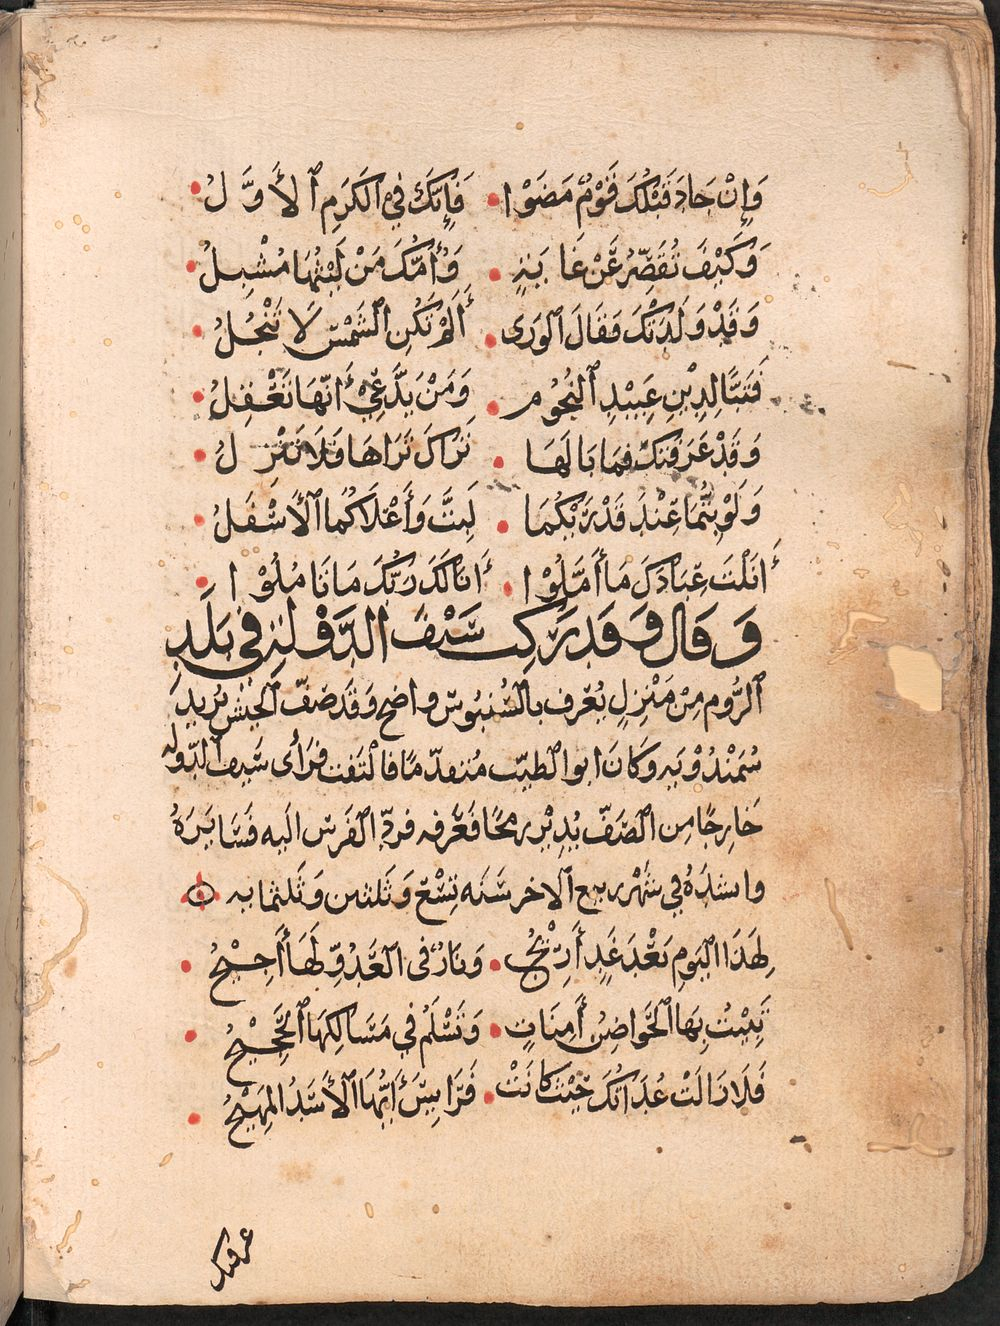 وَإِنْ جَادَ قَبْلَكَ قَوْمٌ مَضَوْا • فَإِنَّكَ فِي الكَرَمِ ٱلأَوَّلُ •
وَكَيْفَ تُقَصِّرُ عَنْ غَايَةٍ • وَأُمُّكَ مَنْ لَيْثُهَا مُشْبِلُ •
وَقَدْ وَلَدَتْكَ فَقَالَ ٱلوَرَى • أَلَمْ تَكُنِ ٱلشَّمْسُ لَا تَنْجُلُ •
فَتَبًّا لِدِيْنِ عَبِيْدِ ٱلنُّجُوْمِ • وَمَنْ يَدَّعِيْ أَنَّهَا تَعْقِلُ •
وَقَدْ عَرَفَتْكَ فَمَا بَالُهَا • تَرَاكَ تَرَاهَا فَلَا تَنْزِلُ •
وَلَوْ بِتُّمَا عِنْدَ قَدْرَيْكُمَا • لَبِتَّ وَأَعْلَاكُمَا ٱلأَسْفَلُ •
أَنَلْتَ عِبَادَكَ مَا أَمَّلُوْا • أَنَالَكَ رَبُّكَ مَا تَامُلُوْا •
وَقَالَ وَقَدْ رَكِبَ سَيْفُ الدَّوْلَةِ فِي بَلَدِ
ٱلرُّوم مِنْ مَنْزِلٍ يُعْرَف بالسُّنْبُوْس واضح وَقَد صَفَّ ٱلجَيْش يُرِيدُ
سُمَنْدُوْيَه وَكَانَ ابو الطيّب مُتَقدّما فالتَفت فرَأى سَيف ٱلدّوله
خَارِجًا مِن الصَفّ يُدِيْر رمحًا فَعَرَفه فردّ الفَرس اليه فَسَايَرَهُ
وانشدَهُ فِي شهْر ربيع ٱلاخر سَنَه تِسْعٍ وَثلثين وَثلثمايه
لِهَذَا اليَوم بَعْدَ غَدٍ أَرِيْجُ • وَنَارٌ فى العَدُوِّ لَهَا أَجِيْجُ •
تَبِيْتُ بِهَا ٱلحَوَاضِنُ أَمِنَاتٍ • وَتَسْلَمُ فِي مَسَالِكِهَا ٱلحَجِيْجُ •
فَلَا زَالَتْ عُدَاتُكَ حَيْثُ كَانَتْ • فَرَايِسَ أَيُّهَا ٱلأَسَدُ المَهِيْجُ •
عرفتك